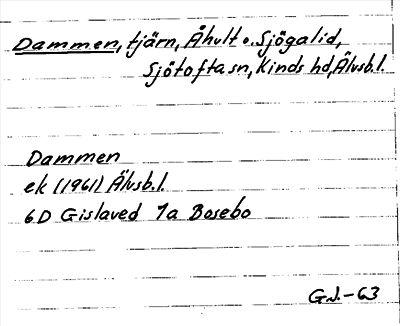 Dammen, tjärn, Åhult o. Sjögalid,
Sjötofta sn, Kinds hd, Älvsb. l.
Dammen
ek (1961) Älvsb. l.
6D Gislaved 7a Bosebo
G.J.-63